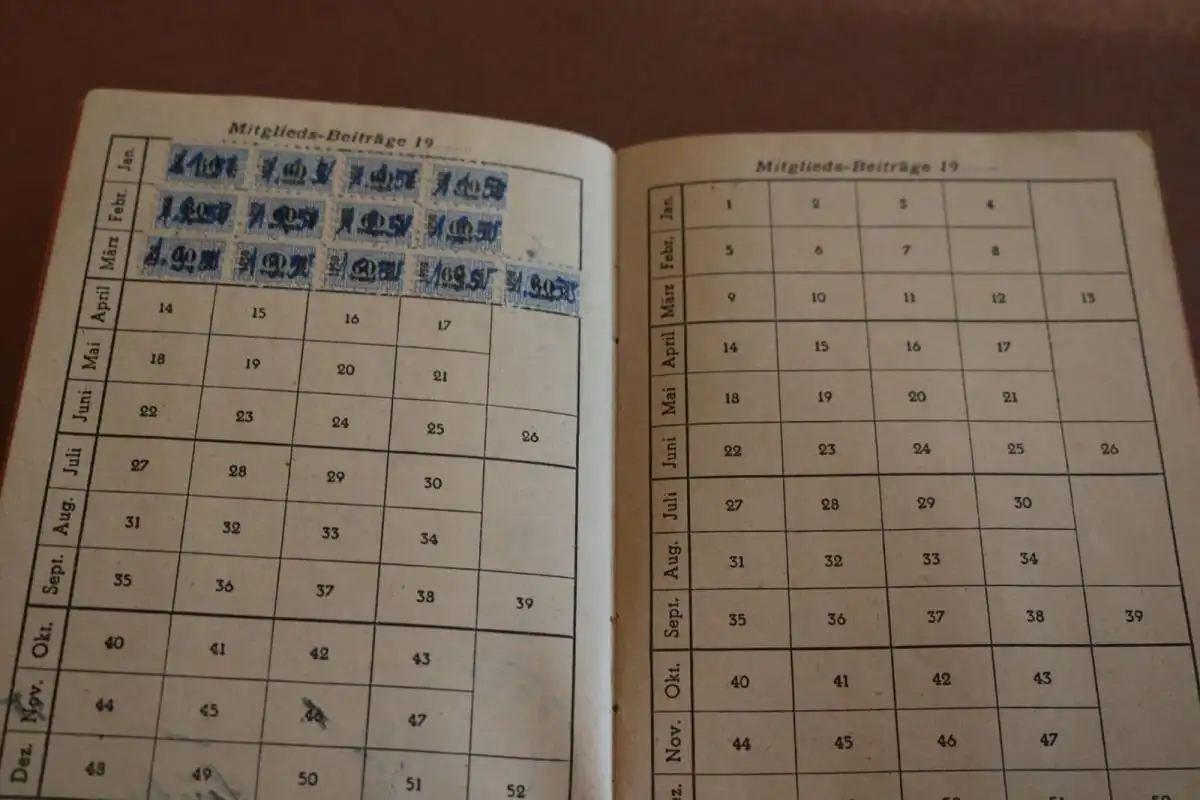 Mitglieds-Beiträge 19
Jan.
Febr.
März
April 14 15 16 17
Mai 18 19 20 21
Juni 22 23 24 25 26
Juli 27 28 29 30
Aug. 31 32 33 34
Sept. 35 36 37 38 39
Okt. 40 41 42 43
Nov. 44 45 46 47
Dez. 48 49 50 51 52
Mitglieds-Beiträge 19
Jan. 1 2 3 4
Febr. 5 6 7 8
März 9 10 11 12 13
April 14 15 16 17
Mai 18 19 20 21
Juni 22 23 24 25 26
Juli 27 28 29 30
Aug. 31 32 33 34
Sept. 35 36 37 38 39
Okt. 40 41 42 43
Nov. 44 45 46 47